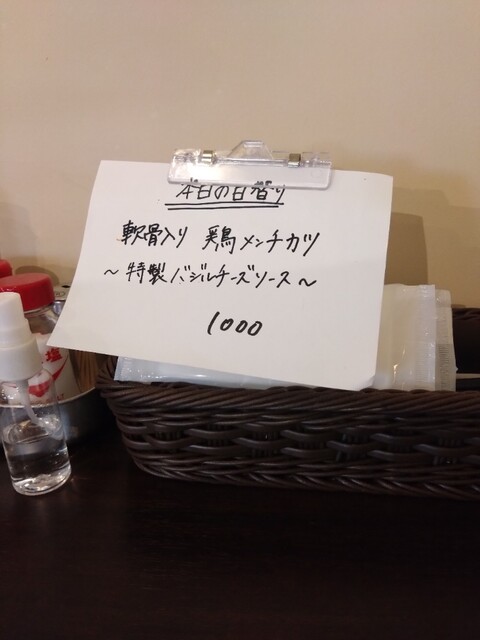 本日の日替り
軟骨入り 鶏メンチカツ
~特製バジルチーズソース~
1000
塩